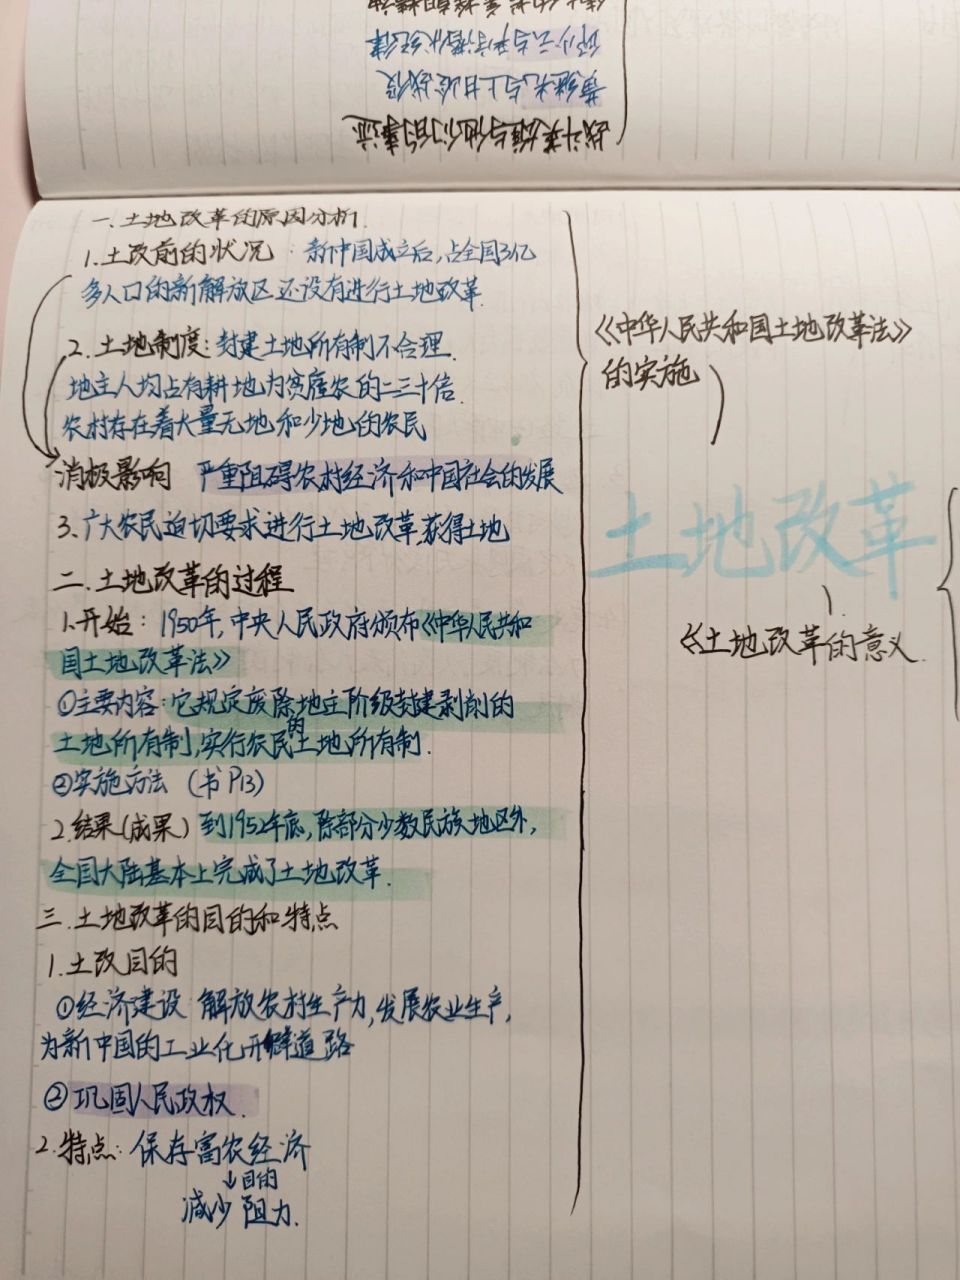 战斗英雄与他们的事迹
黄继光与上甘岭战役
邱少云与严守潜伏纪律
一.土地改革的原因分析.
1.土改前的状况：新中国成立后,占全国3亿
多人口的新解放区还没有进行土地改革.
2.土地制度:封建土地所有制不合理.
地主人均占有耕地为贫雇农的二三十倍.
农村存在着大量无地和少地的农民
消极影响 严重阻碍农村经济和中国社会的发展
3.广大农民迫切要求进行土地改革,获得土地
二.土地改革的过程
1.开始：1950年,中央人民政府颁布《中华人民共和
国土地改革法》
①主要内容:它规定废除地主阶级封建剥削的
土地所有制,实行农民的土地所有制.
②实施方法（书P13）
2.结果(成果）到1952年底,除部分少数民族地区外,
全国大陆基本上完成了土地改革.
三.土地改革的目的和特点
1.土改目的
①经济建设 解放农村生产力,发展农业生产,
为新中国的工业化开辟道路
②巩固人民政权.
2.特点:保存富农经济
↓目的
减少阻力.
《中华人民共和国土地改革法》
的实施
土地改革
《土地改革的意义.